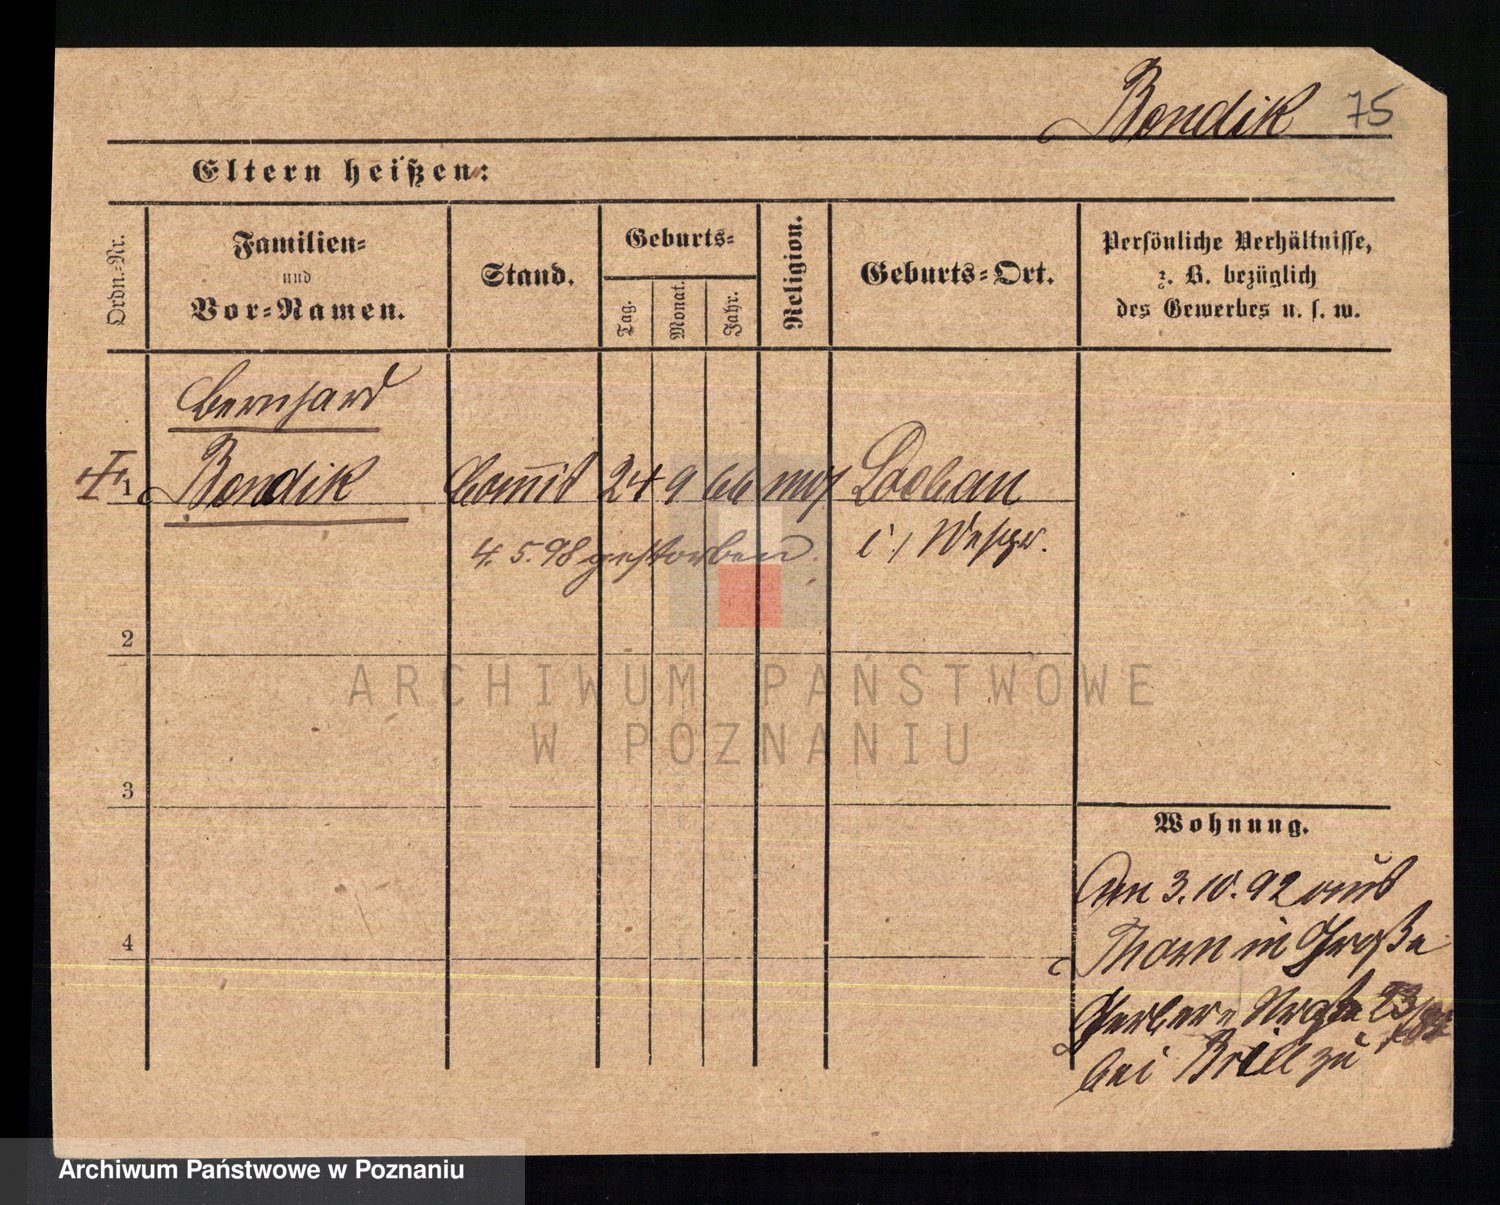 Bondik 75
Eltern heißen:
Ordn.=Nr.
Familien=
und
Vor=Namen.
Stand.
Geburts=
Tag.
Monat.
Jahr.
Religion.
Geburts=Ort.
Persönliche Verhältnisse,
z. B. bezüglich
des Gewerbes u. s. w.
Bernhard
1 Bondik Commis 24 9 66 mos Loebau
4. 5. 98 gestorben. i/ Westpr.
2
3
4
Wohnung.
Am 3.10.92 aus
Thorn in Große
Gerber 23
bei Brill zu
ARCHIWUM PAŃSTWOWE
W POZNANIU
Archiwum Państwowe w Poznaniu